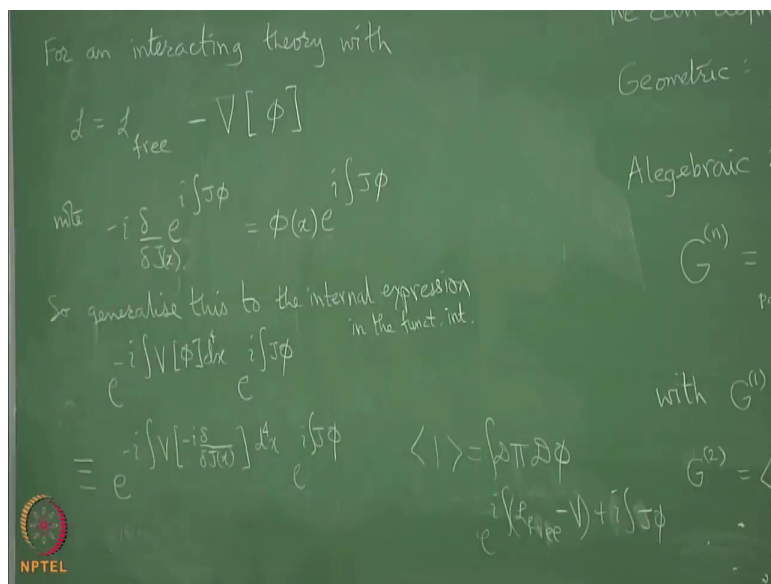 For an interacting theory with
ℒ = ℒ_free − V[ϕ]
note −i δ/δJ(x) e^{i∫Jϕ} = ϕ(x) e^{i∫Jϕ}
So generalise this to the internal expression
in the funct. int.
e^{−i∫V[ϕ]d⁴x} e^{i∫Jϕ}
≡ e^{−i∫V[−iδ/δJ(x)] d⁴x} e^{i∫Jϕ}
⟨1⟩ = ∫𝒟π 𝒟ϕ
e^{i∫(ℒ_free−V)+i∫Jϕ}
We can
Geometric :
Alegebraic :
G^{(n)} =
with G^{(1)}
G^{(2)} = ⟨
NPTEL